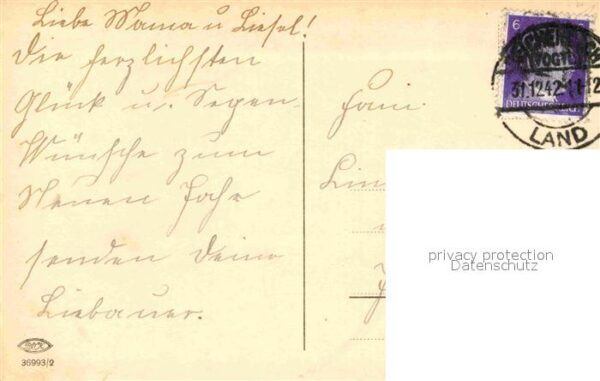 Liebe Mama u Liesel!
Die herzlichsten
Glück u. Segen-
Wünsche zum
Neuen Jahr
senden Deine
Liebauer.
36993/2
Fam.
6
VOGTL
31.12.42-11
DEUTSCHES REICH
LAND
privacy protection
Datenschutz